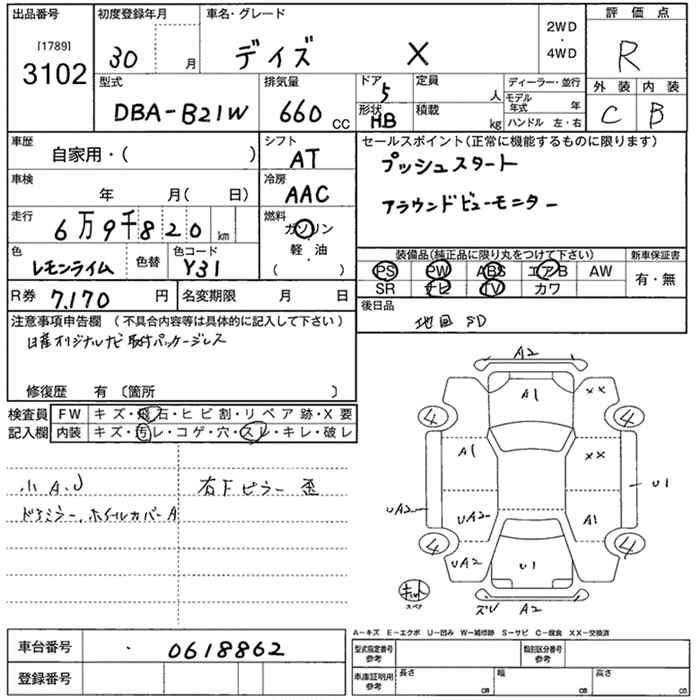 出品番号 初度登録年月 車名・グレード 評価点
[1789] 3102 30 月 デイズ X 2WD・4WD R
型式 DBA-B21W
排気量 660 CC
ドア 5
形状 HB
定員 人
積載 kg
ディーラー・並行
モデル年式 年
ハンドル 左・右
外装 内装
C B
車歴 自家用・( )
シフト AT
車検 年 月( 日)
冷房 AAC
走行 6万9千820 km
燃料 ガソリン 軽・油 ( )
色 レモンライム 色替
色コード Y31
R券 7,170 円 名変期限 月 日
セールスポイント(正常に機能するものに限ります)
プッシュスタート
アラウンドビューモニター
装備品(純正品に限り丸をつけて下さい) 新車保証書
PS PW ABS エアB AW 有・無
SR ナビ TV カワ
後日品
地図SD
注意事項申告欄 (不具合内容等は具体的に記入して下さい)
日産オリジナルナビ取付パッケージレス
修復歴 有 〔箇所 〕
検査員 FW キズ・飛石・ヒビ割・リペア跡・X要
記入欄 内装 キズ・汚レ・コゲ・穴・スレ・キレ・破レ
小A、U 右Fピラー 歪
ドアミラー、ホイールカバーA
A2
A1 XX
4 4
A1 XX
U1
UA2
UA2 A1
4 4
UA2 U1
キット
スペア
ズレ A2
A-キズ E-エクボ U-凹み W-補修跡 S-サビ C-腐食 XX-交換済
車台番号 0618862
登録番号
型式指定番号 参考 類別区分番号 参考
車庫証明用 参考 長さ cm 幅 cm 高さ cm